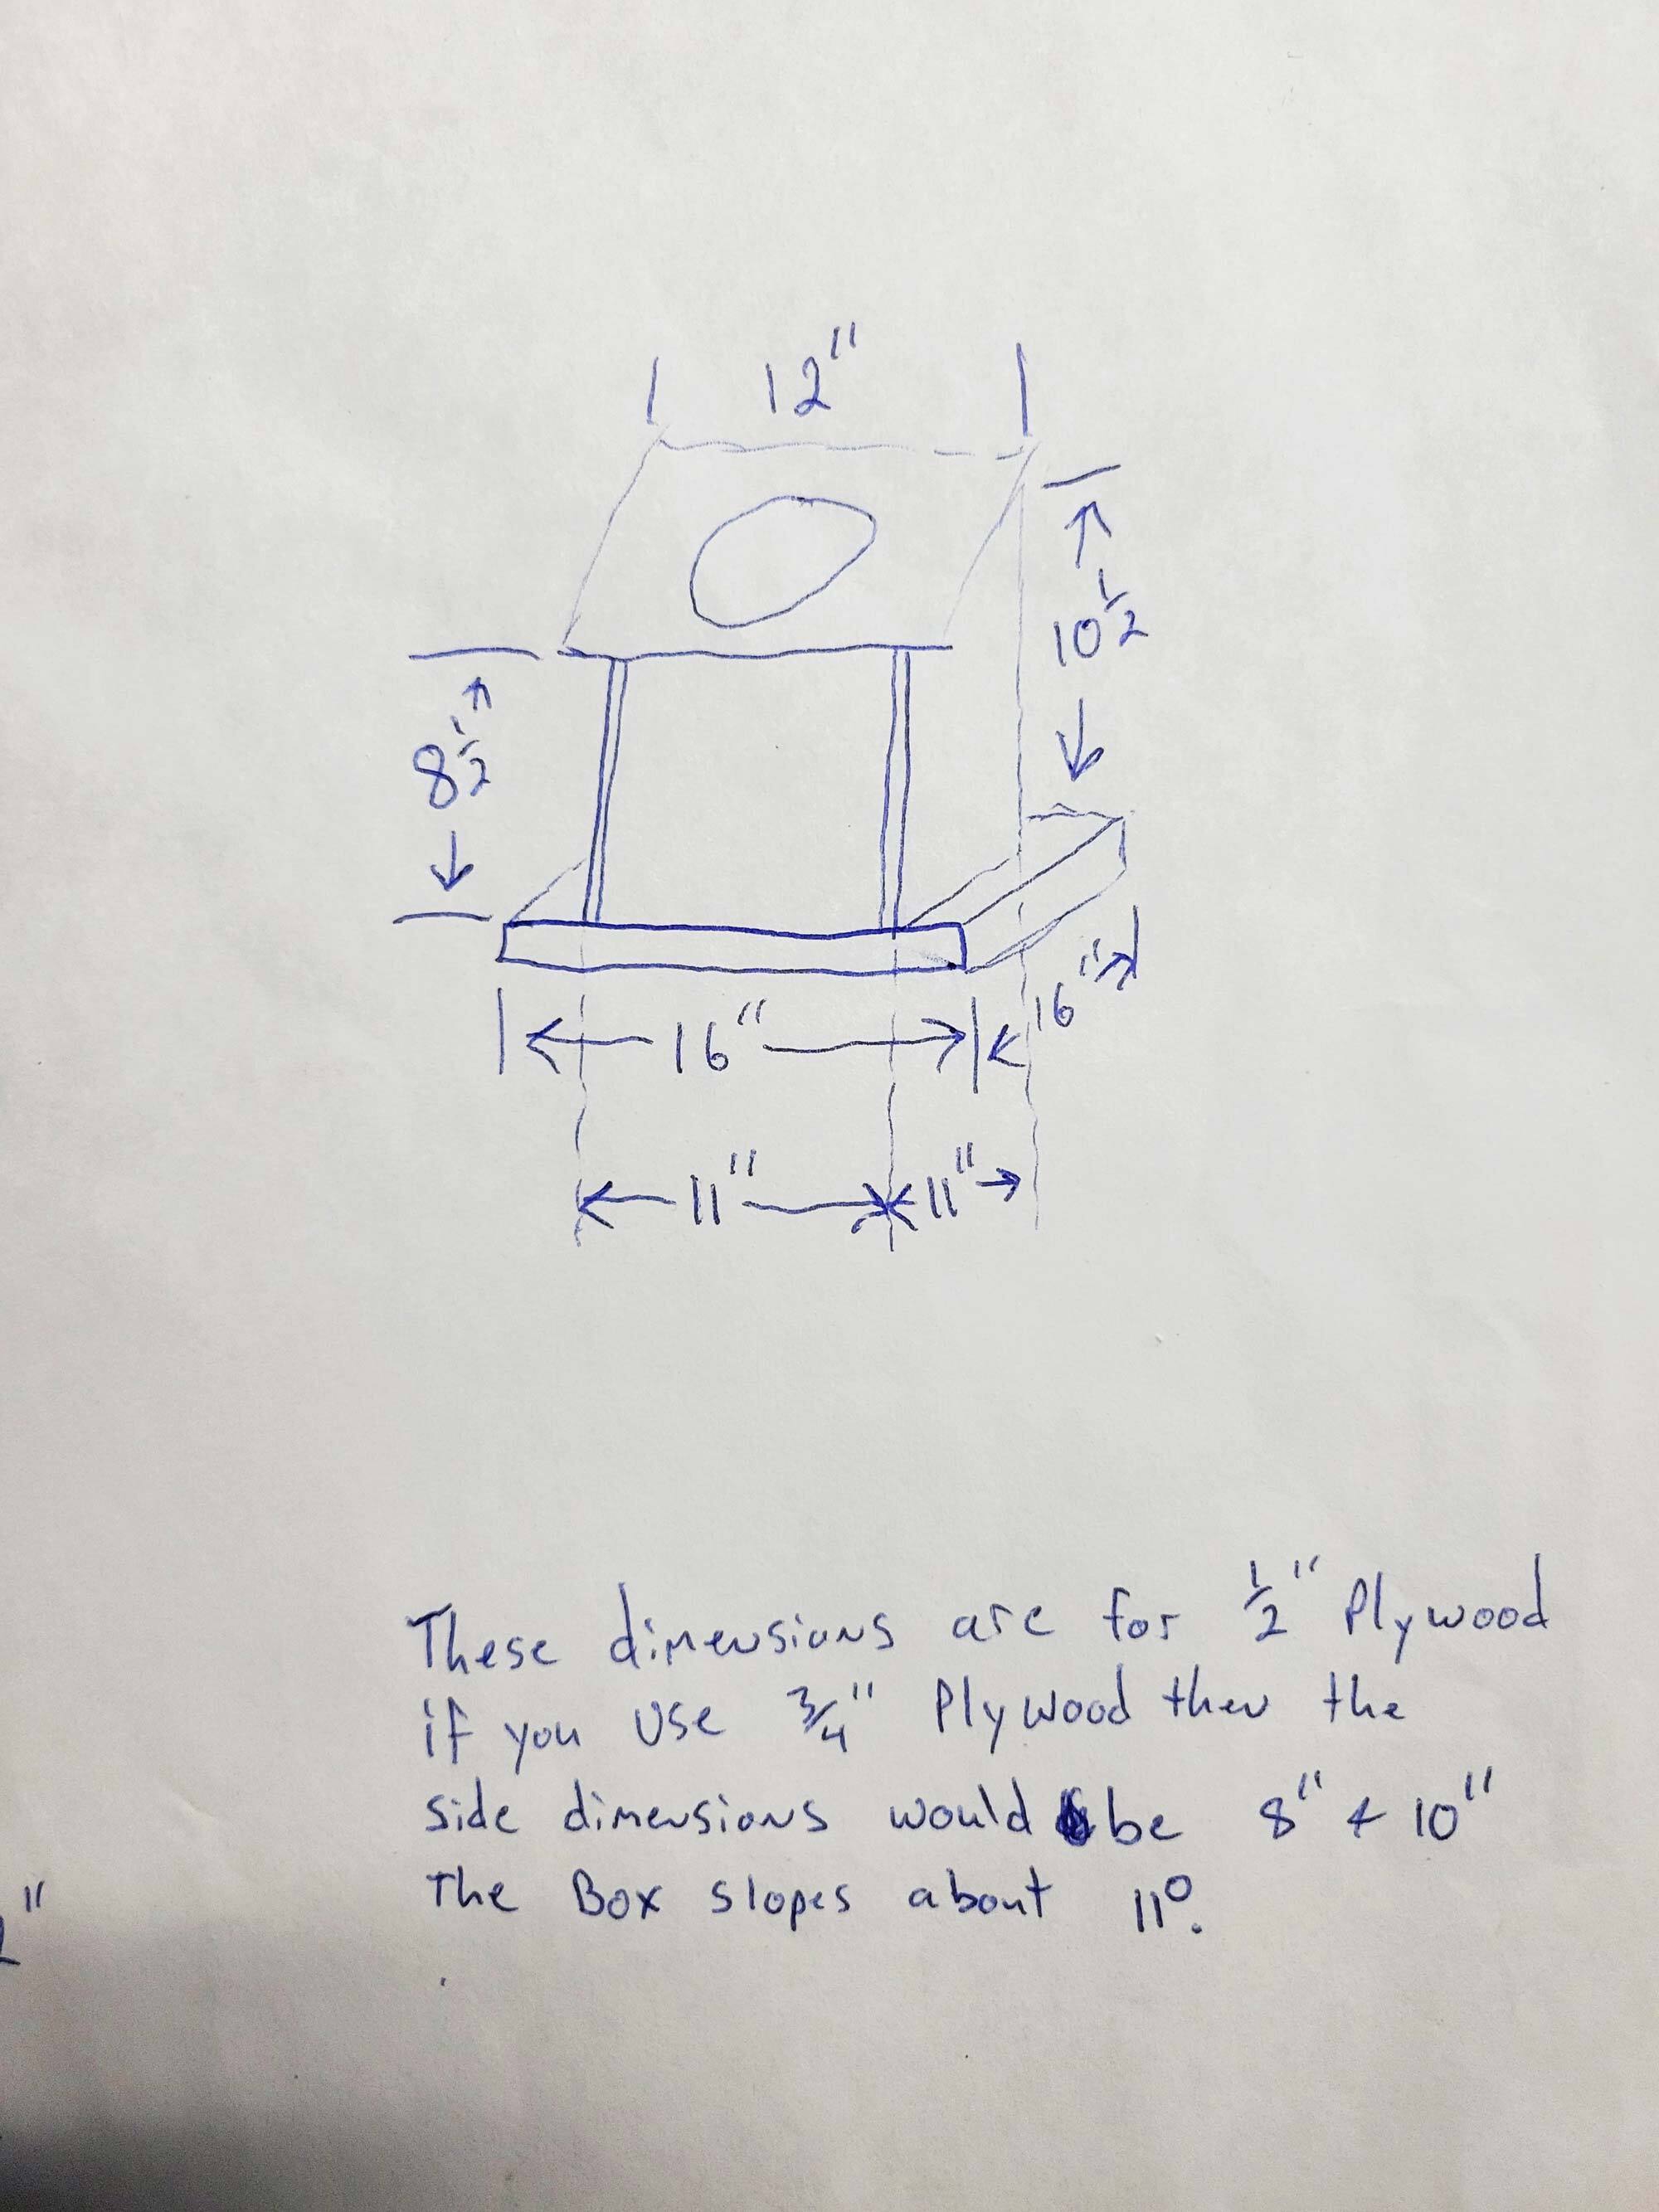 12"
10 1/2
8 1/2
16"
16"
11"
11"
These dimensions are for 1/2" Plywood
if you use 3/4" Plywood then the
side dimensions would be 8" & 10"
The Box slopes about 11°.
"